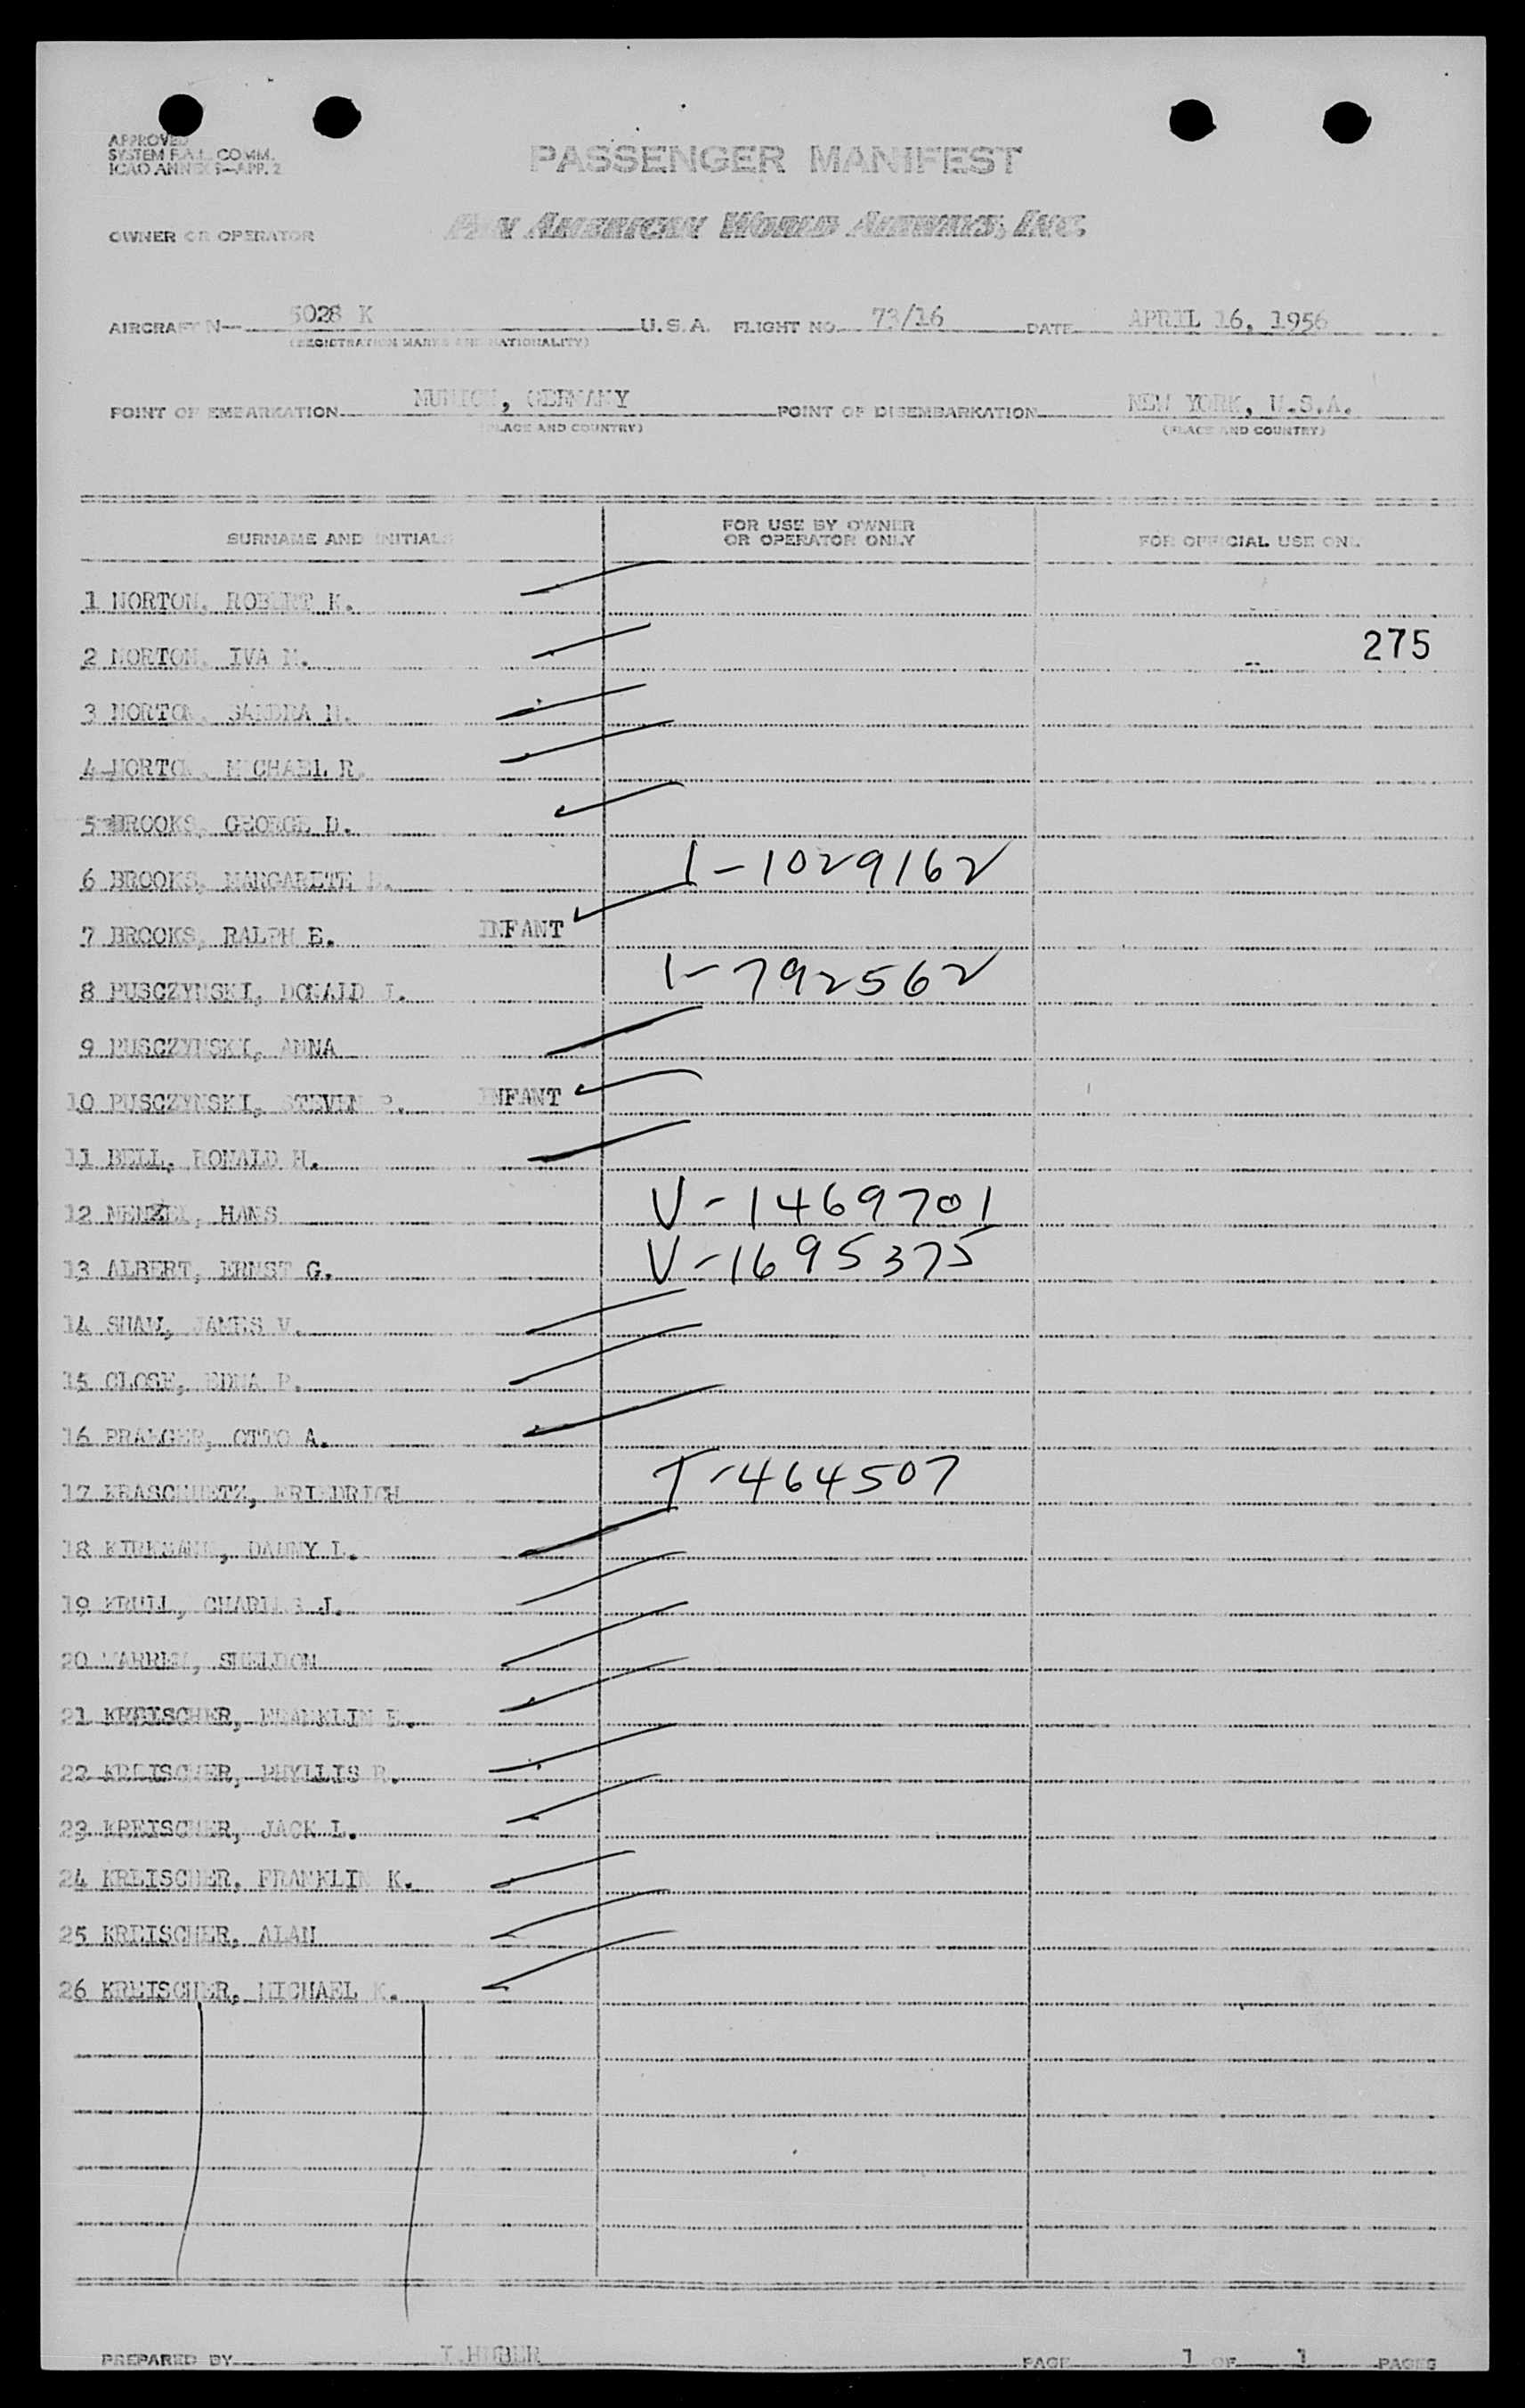 APPROVED
SYSTEM F.A.L. COMM.
ICAO ANNEX 9—APP. 2
PASSENGER MANIFEST
OWNER OR OPERATOR
PAN AMERICAN WORLD AIRWAYS, INC.
AIRCRAFT N— 5028 K U.S.A. FLIGHT NO. 73/16 DATE APRIL 16, 1956
(REGISTRATION MARKS AND NATIONALITY)
POINT OF EMBARKATION MUNICH, GERMANY POINT OF DISEMBARKATION NEW YORK, U.S.A.
(PLACE AND COUNTRY) (PLACE AND COUNTRY)
SURNAME AND INITIALS FOR USE BY OWNER OR OPERATOR ONLY FOR OFFICIAL USE ONLY
1 NORTON, ROBERT K.
2 NORTON, IVA M. 275
3 NORTON, SANDRA
4 NORTON, MICHAEL R.
5 BROOKS, GEORGE D.
6 BROOKS, MARGARETE I-1029162
7 BROOKS, RALPH E. INFANT
8 PUSCZYNSKI, DONALD J. I-792562
9 PUSCZYNSKI, ANNA
10 PUSCZYNSKI, STEVEN P. INFANT
11 BELL, RONALD H.
12 MENZEL, HANS V-1469701
13 ALBERT, ERNST G. V-1695375
14 SHAW, JAMES V.
15 CLOSE, EDNA P.
16 PRAEGER, OTTO A.
17 FRIEDRICH T-464507
18 KIRKMANN, DANNY L.
19 KRULL, CHARLES J.
20 WARREN, SHELDON
21 KREISCHER, FRANKLIN
22 KREISCHER, PHYLLIS R.
23 KREISCHER, JACK L.
24 KREISCHER, FRANKLIN K.
25 KREISCHER, ALAN
26 KREISCHER, MICHAEL K.
PREPARED BY I.HUBER PAGE 1 OF 1 PAGES